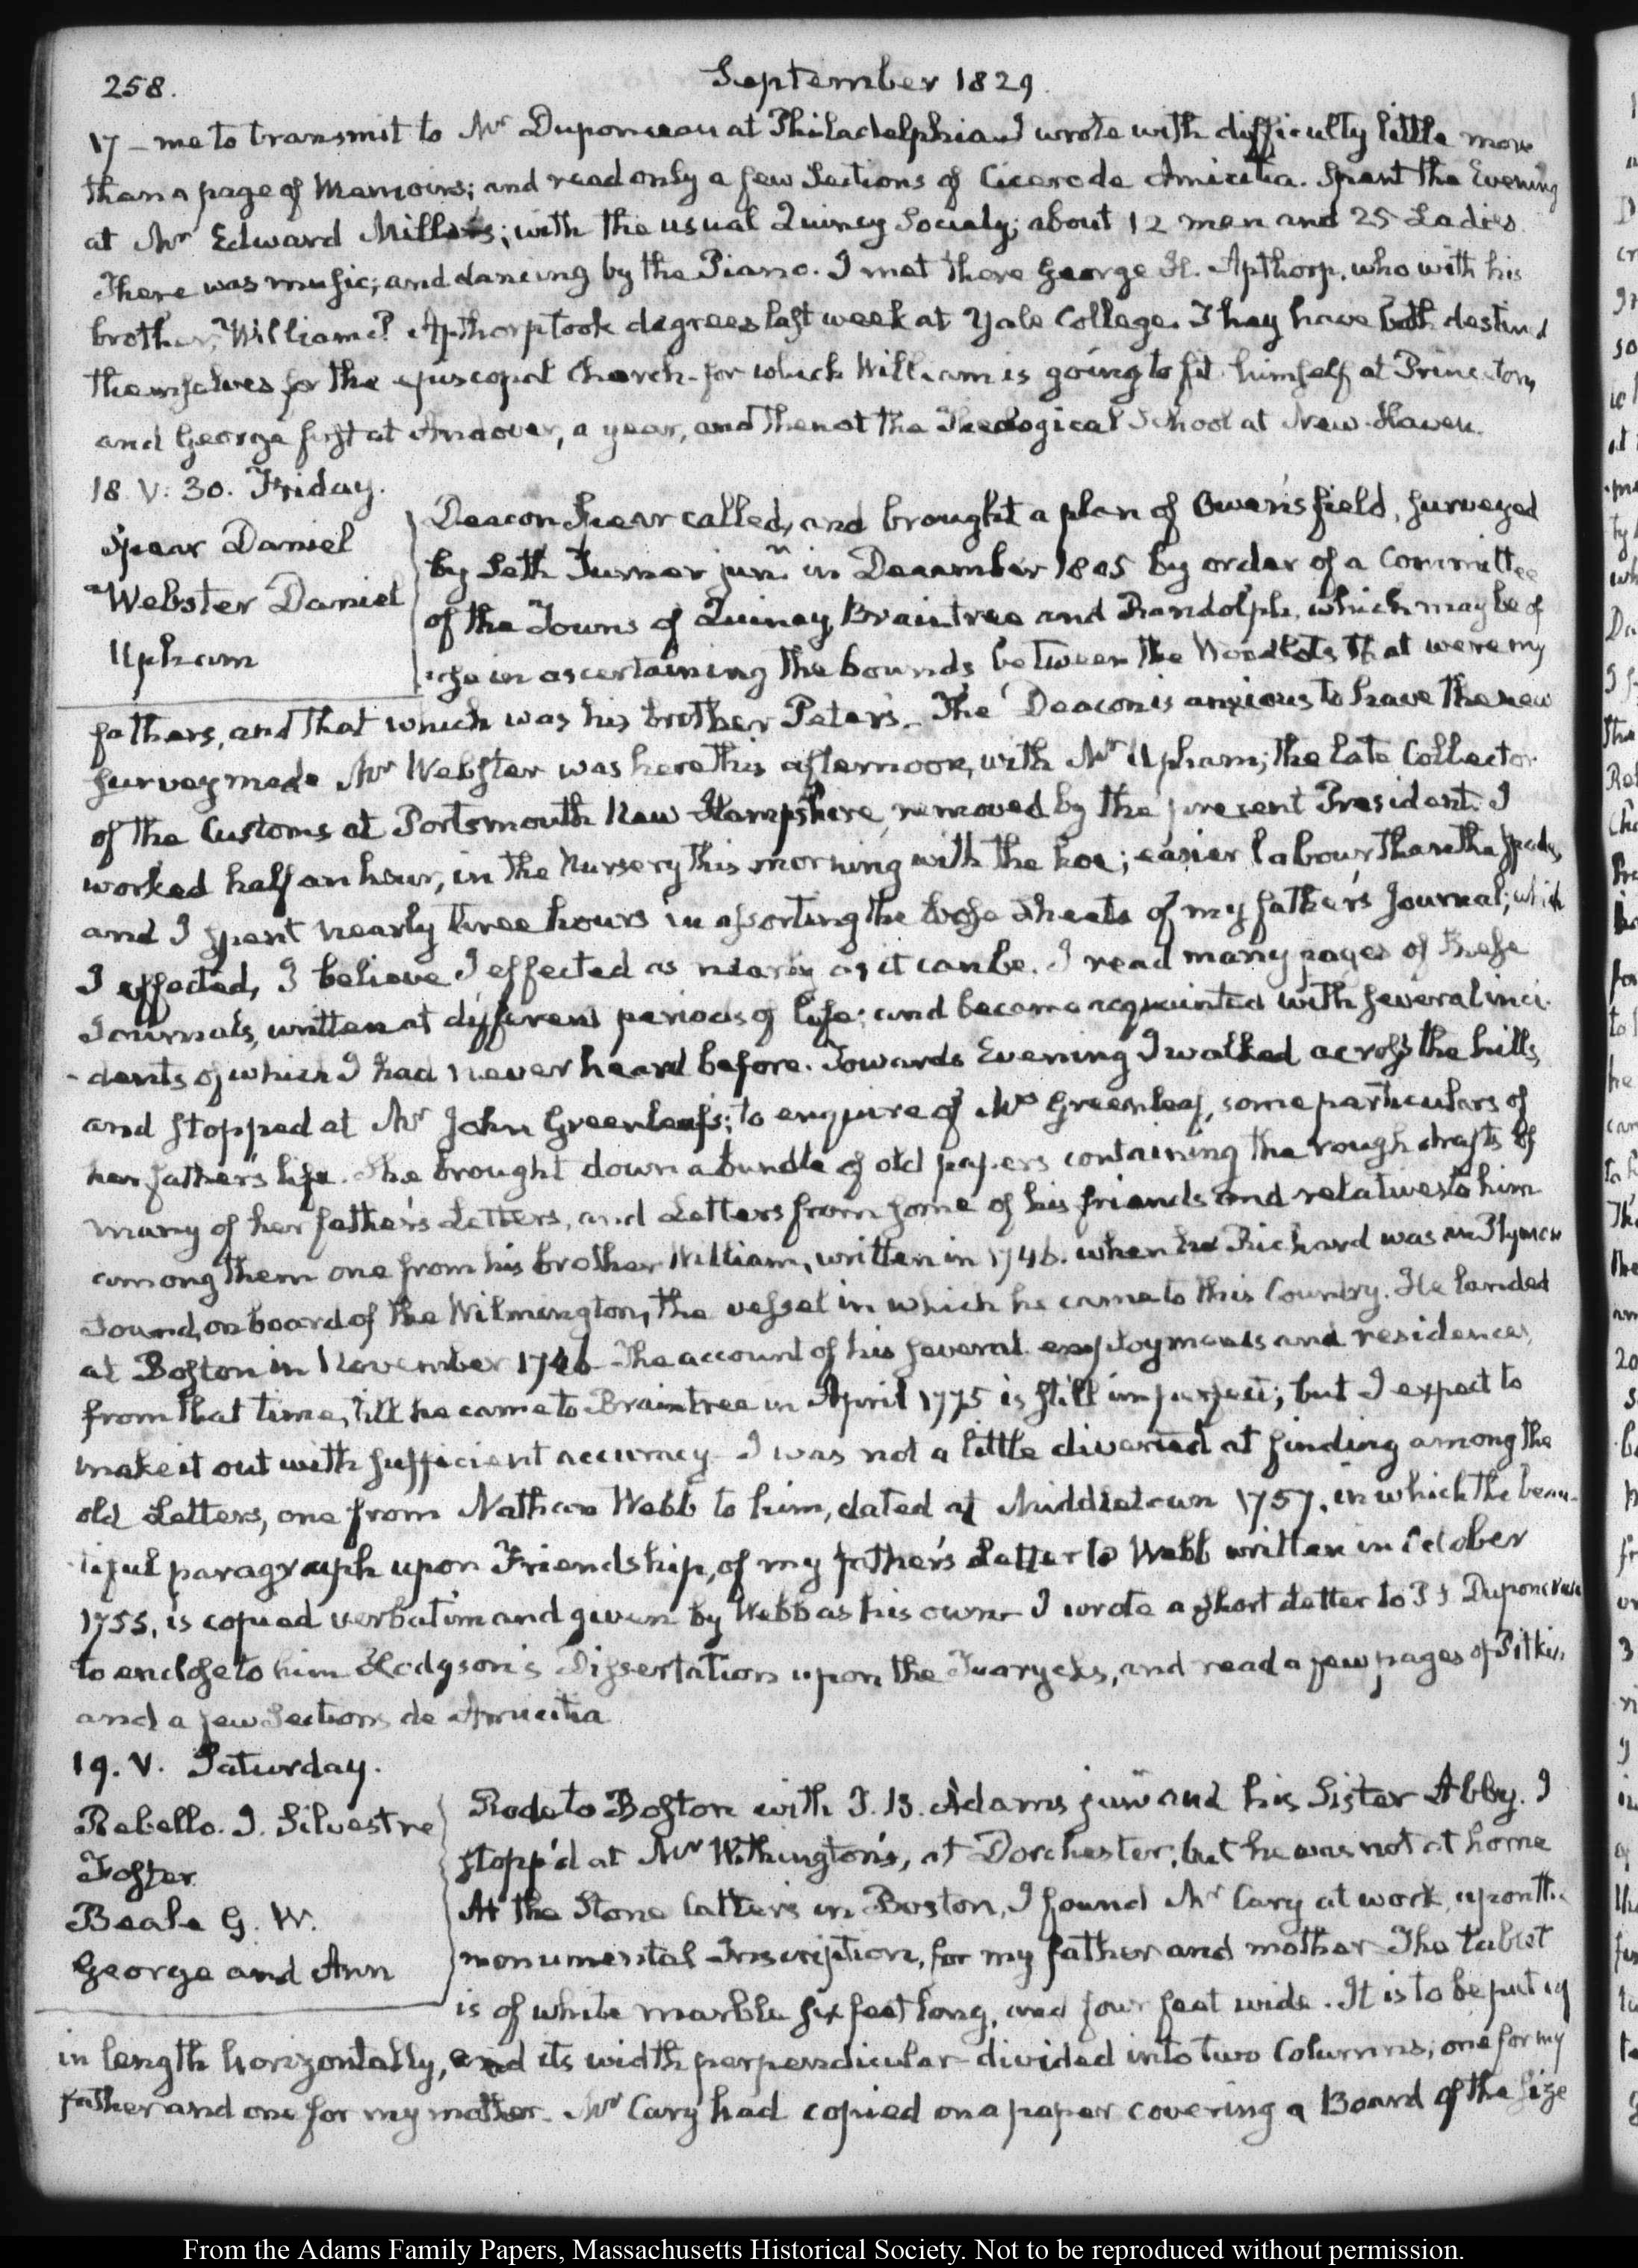 258.
September 1829.
17 – me to transmit to Mr Duponceau at Philadelphia. I wrote with difficulty little more
than a page of Memoirs; and read only a few Sections of Cicero de Amicitia. Spent the Evening
at Mr Edward Miller's; with the usual Quincy Society; about 12 men and 25 Ladies.
There was music; and dancing by the Piano. I met there George H. Apthorp, who with his
brother, William P. Apthorp took degrees last week at Yale College. They have both destined
themselves for the episcopal Church – for which William is going to fit himself at Princeton,
and George first at Andover, a year, and then at the Theological School at New-Haven.
18. V: 30. Friday.
Spear Daniel
Webster Daniel
Upham
Deacon Spear called, and brought a plan of Owen's field, surveyed
by Seth Turner junr. in December 1805 by order of a Committee
of the Towns of Quincy, Braintree and Randolph, which may be of
use in ascertaining the bounds between the Woodlots that were my
fathers, and that which was his brother Peter's. The Deacon is anxious to have the new
survey made. Mr Webster was here this afternoon, with Mr Upham; the late Collector
of the Customs at Portsmouth New-Hampshire, removed by the present President. I
worked half an hour, in the Nursery this morning with the hoe; easier labour than the spade,
and I spent nearly three hours in assorting the loose sheets of my father's Journal; which
I effected, I believe I effected as nearly as it can be. I read many pages of these
Journals, written at different periods of life; and became acquainted with several inci-
-dents of which I had never heard before. Towards Evening I walked across the hills,
and stopped at Mr John Greenleaf's; to enquire of Mrs Greenleaf, some particulars of
her father's life. She brought down a bundle of old papers containing the rough drafts of
many of her father's Letters, and Letters from some of his friends and relatives to him
among them one from his brother William, written in 1746. when Richard was in Plymouth
Sound, on board of the Wilmington, the vessel in which he came to this Country. He landed
at Boston in November 1746. The account of his several employments and residences,
from that time, till he came to Braintree in April 1775 is still imperfect; but I expect to
make it out with sufficient accuracy. I was not a little diverted at finding among the
old Letters, one from Nathan Webb to him, dated at Middletown 1757. in which the beau-
-tiful paragraph upon Friendship, of my father's Letter to Webb written in October
1755, is copied verbatim and given by Webb as his own. I wrote a short Letter to P. S. Duponceau
to enclose to him Hodgson's Dissertation upon the Tuarycks, and read a few pages of Pitkin,
and a few Sections de Amicitia.
19. V. Saturday.
Rebello. J. Silvestre
Foster
Beale G. W.
George and Ann
Rode to Boston with J. B. Adams junr and his Sister Abby. I
stopp'd at Mr Withington's, at Dorchester, but he was not at home
At the Stone Cutters in Boston, I found Mr Cary at work, upon the
monumental Inscription, for my father and mother. The tablet
is of white marble six feet long, and four feet wide. It is to be put up
in length horizontally, and its width perpendicular – divided into two Columns; one for my
father and one for my mother. Mr Cary had copied on a paper covering a Board of the size
From the Adams Family Papers, Massachusetts Historical Society. Not to be reproduced without permission.